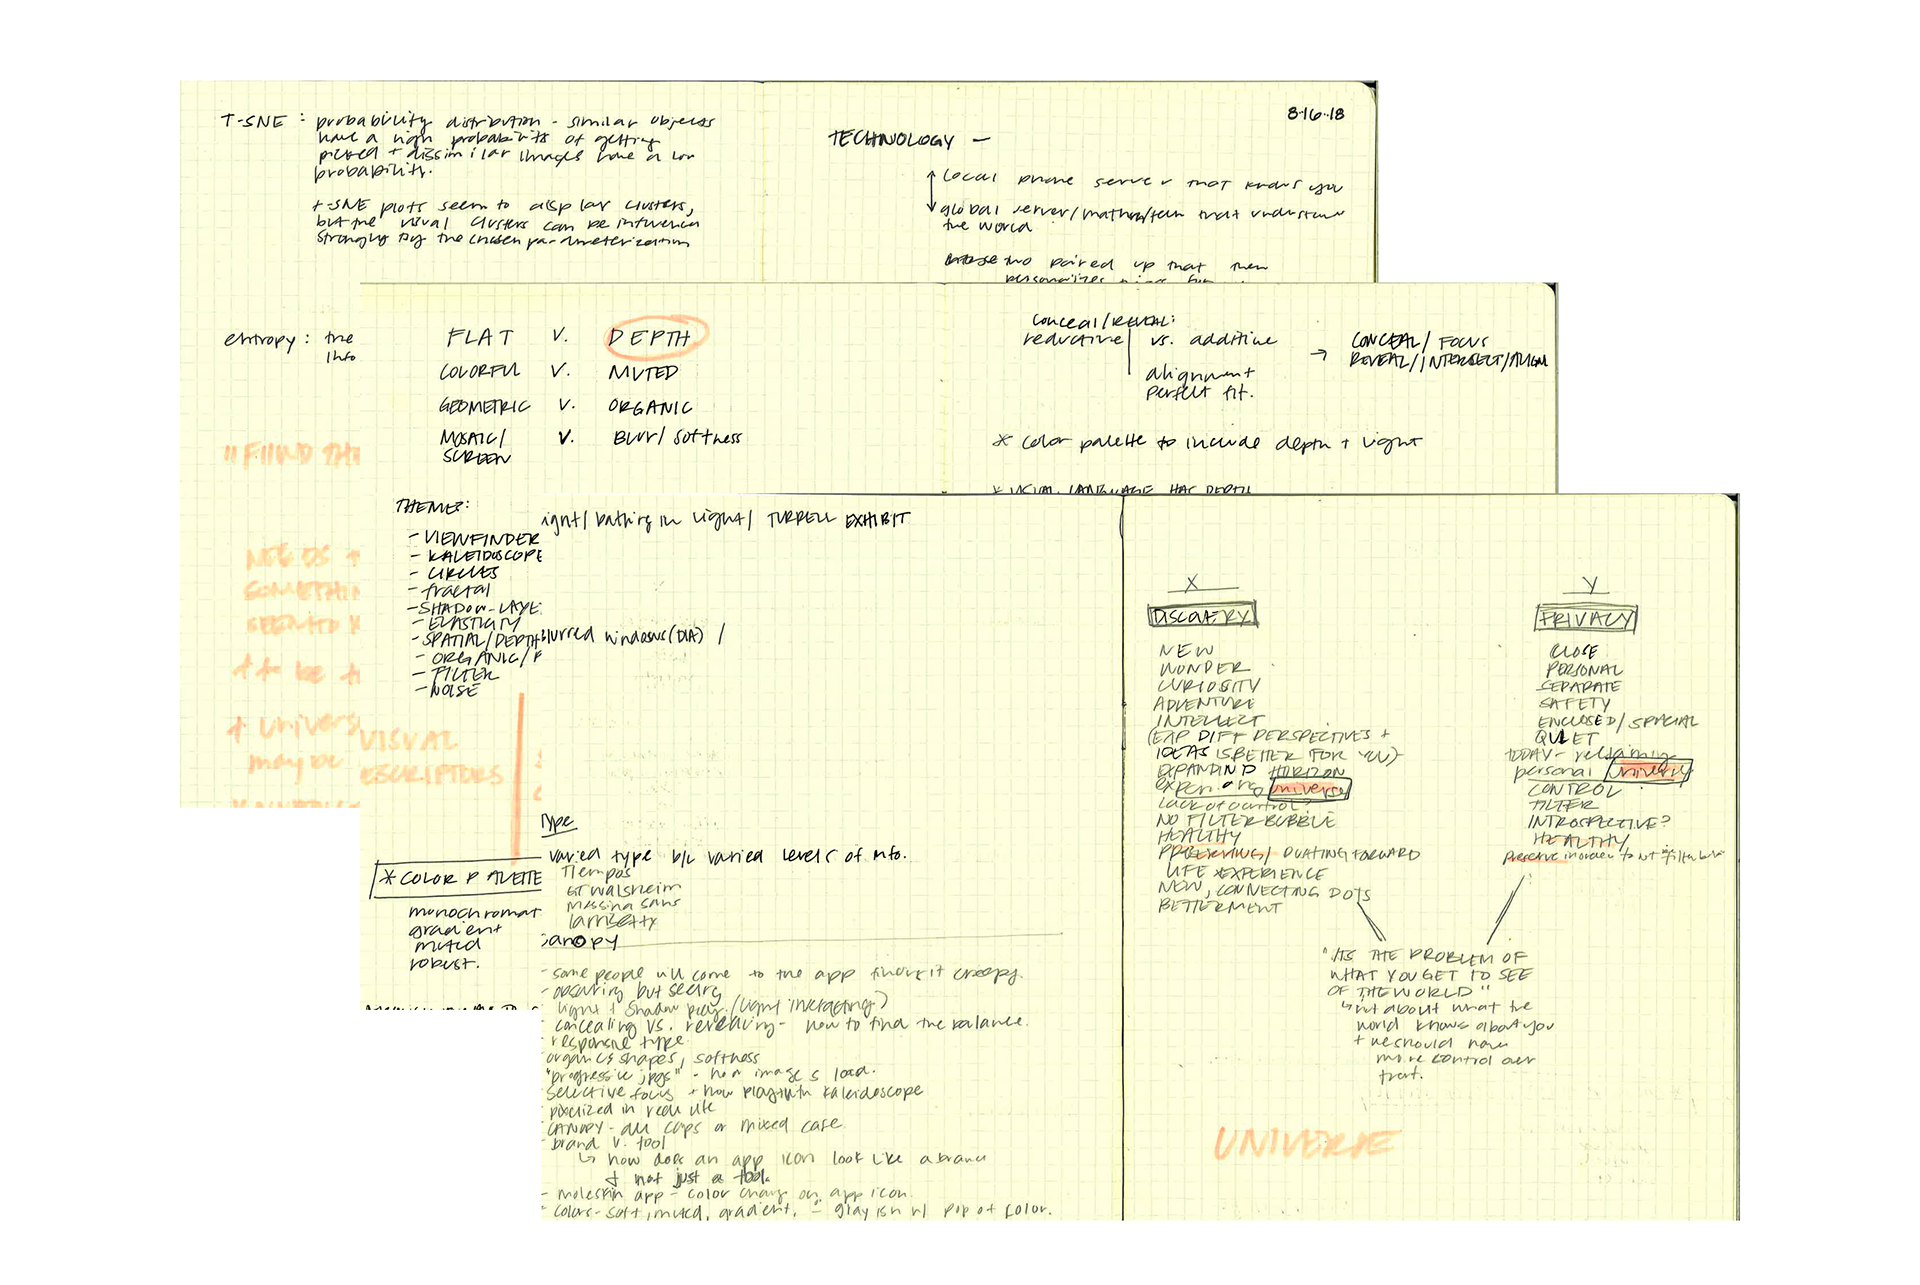 8·16·18
T-SNE : probability distribution - similar objects
have a high probability of getting
picked + dissimilar images have a low
probability.
t-SNE plots seem to display clusters,
but the visual clusters can be influenced
strongly by the chosen parameterization
TECHNOLOGY —
local phone server that knows you
global server/ that understand
the world
two paired up that then
entropy : the
info
"FIIND THI
NEEDS +
SOMETHIN
++ be t
+ univers
maybe
FLAT V. DEPTH
COLORFUL V. MUTED
GEOMETRIC V. ORGANIC
MOSAIC/ V. BLUR/ SOFTNESS
SCREEN
Conceal/REVEAL:
reductive vs. additive
alignment
perfect fit.
→ CONCEAL/ FOCUS
REVEAL//INTERSECT/ALIGN
* color palette to include depth + light
* VISUAL LANGUAGE HAS DEPTH
THEMES:
- VIEWFINDER
- KALEIDOSCOPE
- CIRCLES
- fractal
- SHADOW-LAYE
- ELASTICITY
- SPATIAL/DEPTH
- ORGANIC/
- FILTER
- NOISE
VISUAL
ESCRIPTORS
* COLOR PALETTE
monochromat
gradient
muted
robust.
ight/ bathing in light/ TURRELL EXHIBIT
blurred windows (DIA) /
Type
varied type b/c varied levels of info.
Tiempos
GT Walsheim
Messina Sans
canopy
- some people will come to the app think it creepy.
- obscuring but seeing
- light + shadow play. (light interacting)
- concealing vs. revealing - how to find the balance.
- responsive type
organic shapes, softness
"progressive jpgs" - how images load.
selective focus + how play with kaleidoscope
pixelized in real life
CANOPY - all caps or mixed case
- brand v. tool
↳ how does an app icon look like a brand
+ not just a tool.
- moleskin app - color change on app icon.
- colors - soft, muted, gradient, grayish w/ pop of color.
X
DISCOVERY
NEW
WONDER
CURIOSITY
ADVENTURE
INTELLECT
(EXP DIFF PERSPECTIVES +
IDEAS IS BETTER FOR YOU)
EXPANDING HORIZON
universe
lack of control?
NO FILTER BUBBLE
HEALTHY
FORWARD
LIFE EXPERIENCE
NEW, CONNECTING DOTS
BETTERMENT
Y
PRIVACY
CLOSE
PERSONAL
SEPARATE
SAFETY
ENCLOSED/ SPACIAL
QUIET
TODAY - reclaiming
personal universe
CONTROL
FILTER
INTROSPECTIVE?
HEALTHY
preserve in order to not filter
"ITS THE PROBLEM OF
WHAT YOU GET TO SEE
OF THE WORLD"
↳ but about what the
world knows about you
+ we should have
more control over
that.
UNIVERSE